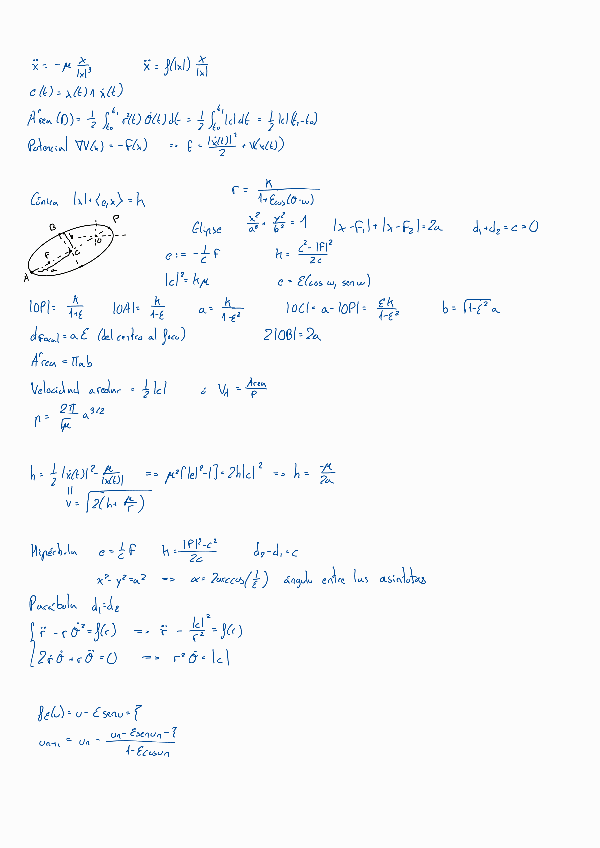 ẍ = -μ x/|x|³    ẍ = f(|x|) x/|x|
c(t) = x(t) ∧ ẋ(t)
Área (D) = 1/2 ∫_{t₀}^{t₁} r²(t) θ̇(t) dt = 1/2 ∫_{t₀}^{t₁} |c| dt = 1/2 |c|(t₁-t₀)
Potencial ∇V(x) = -F(x) ⇒ E = |ẋ(t)|²/2 + V(x(t))
Cónica |x| + ⟨e,x⟩ = k    r = k/(1+εcos(θ-ω))
Elipse x²/a² + y²/b² = 1    |x-F₁| + |x-F₂| = 2a    d₁+d₂=c=0
e := -1/c F    k = (c²-|F|²)/2c
|c|² = kμ    e = ε(cos ω, sen ω)
A B C F O P a b
|OP| = k/(1+ε)    |OA| = k/(1-ε)    a = k/(1-ε²)    |OC| = a-|OP| = εk/(1-ε²)    b = √(1-ε²) a
d_focal = aε (del centro al foco)    2|OB| = 2a
Área = πab
Velocidad areolar = 1/2 |c|    ¿ V_A = Área/p
p = 2π/√μ a^{3/2}
h = 1/2 |ẋ(t)|² - μ/|x(t)| ⇒ μ²[|e|²-1] = 2h|c|² ⇒ h = -μ/2a
v = √(2(h + μ/r))
Hipérbola    e = 1/c F    k = (|F|²-c²)/2c    d₂-d₁=c
x²-y²=a² ⇒ α = 2arccos(1/ε) ángulo entre las asíntotas
Parábola d₁=d₂
{ r̈ - r θ̇² = f(r) ⇒ r̈ - |c|²/r³ = f(r)
2ṙθ̇ + rθ̈ = 0 ⇒ r²θ̇ = |c|
f_ε(u) = u - ε sen u = ξ
u_{n+1} = u_n - (u_n - ε sen u_n - ξ)/(1-ε cos u_n)